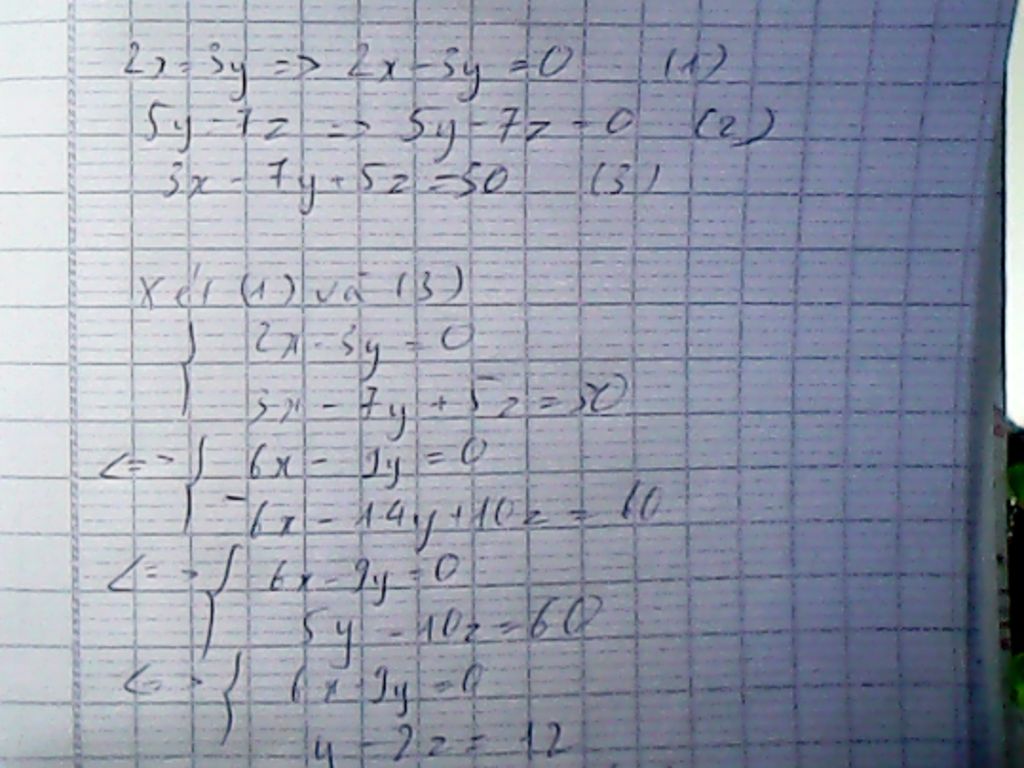 2x = 3y => 2x - 3y = 0 (1)
5y = 7z => 5y - 7z = 0 (2)
3x - 7y + 5z = 30 (3)
Xét (1) và (3)
{ 2x - 3y = 0
3x - 7y + 5z = 30
<=> { 6x - 9y = 0
- 6x - 14y + 10z = 60
<=> { 6x - 9y = 0
5y - 10z = 60
<=> { 6x - 9y = 0
y - 2z = 12